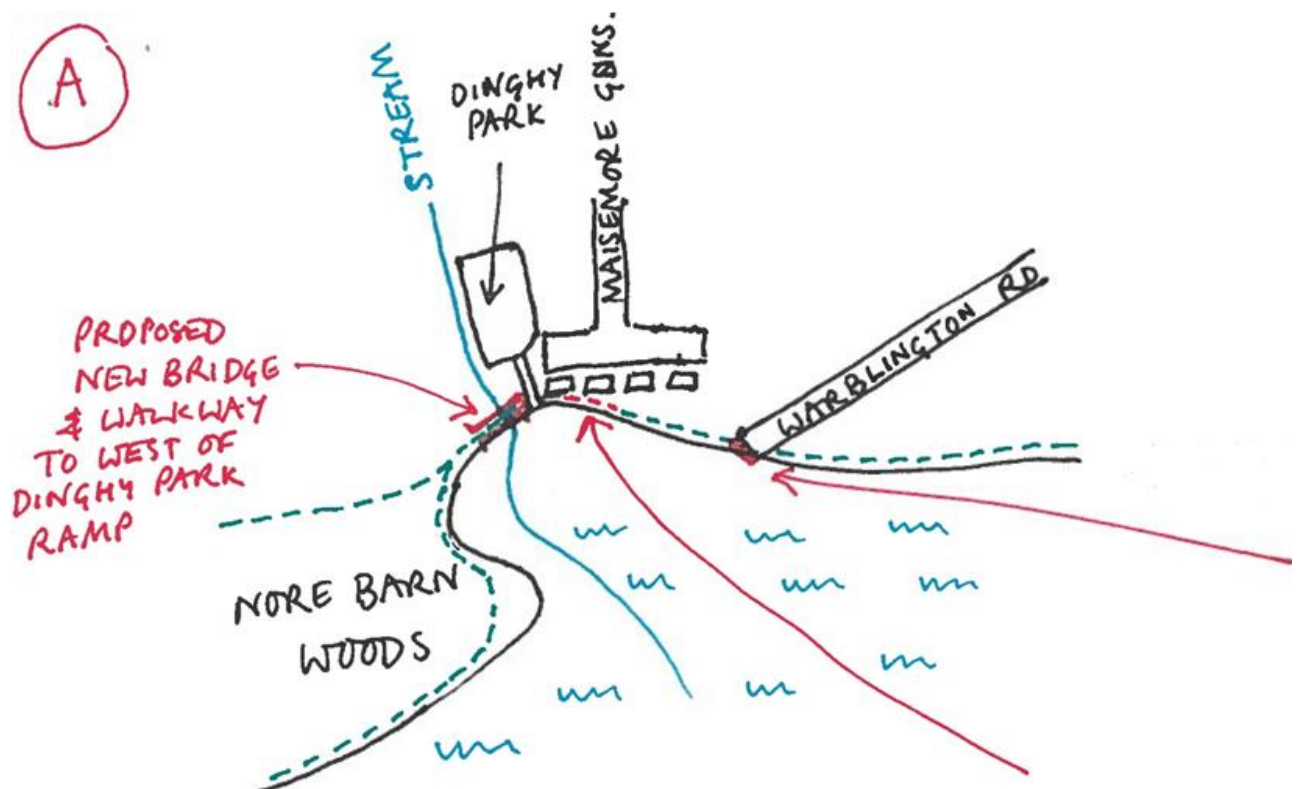 A
STREAM
DINGHY
PARK
MAISEMORE GDNS.
WARBLINGTON RD
PROPOSED
NEW BRIDGE
& WALKWAY
TO WEST OF
DINGHY PARK
RAMP
NORE BARN
WOODS